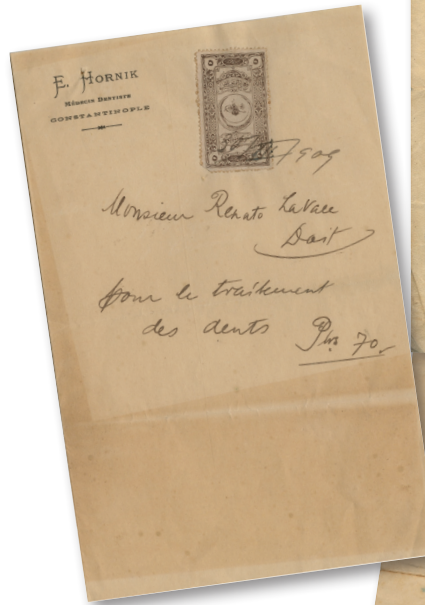 E. HORNIK
MÉDECIN DENTISTE
CONSTANTINOPLE
Monsieur Renato LaVace
Doit
pour le traitement
des dents Ptrs 70.-